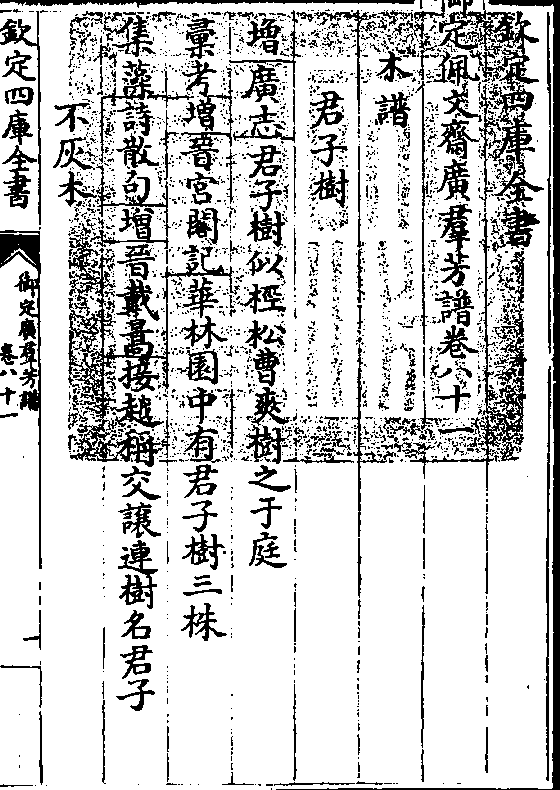 欽定四庫全書
御定佩文齋廣羣芳譜卷八十一
木譜
君子樹
增廣志君子樹似檉松曹爽樹之于庭
彙考增晉宮閣記華林園中有君子樹三株
集藻詩散句增晉戴暠接越稱交讓連樹名君子
不灰木
欽定四庫全書
御定廣羣芳譜
卷八十一
一